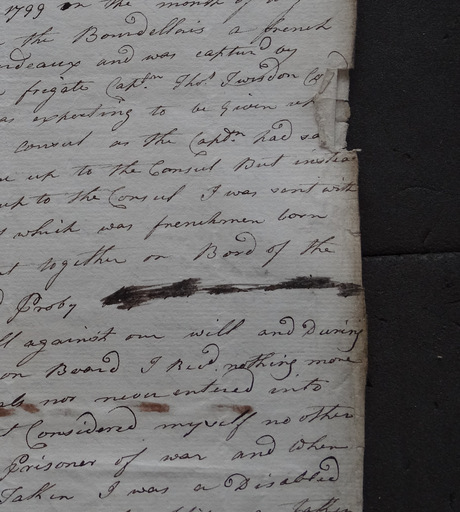 1799 in the month of
the Bourdellois a french
ordeaux and was captur'd by
frigate Capt.n Tho.s Twisdon
as expecting to be Given up
consul as the Capt.n had sa
up to the Consul But instead
up to the Consul I was sent with
which was frenchmen born
together on Bord of the
Proby
against our will and During
on Board I Rec.d nothing more
nor never entered into
Considered myself no other
Prisoner of war and when
Taken I was a Disabled